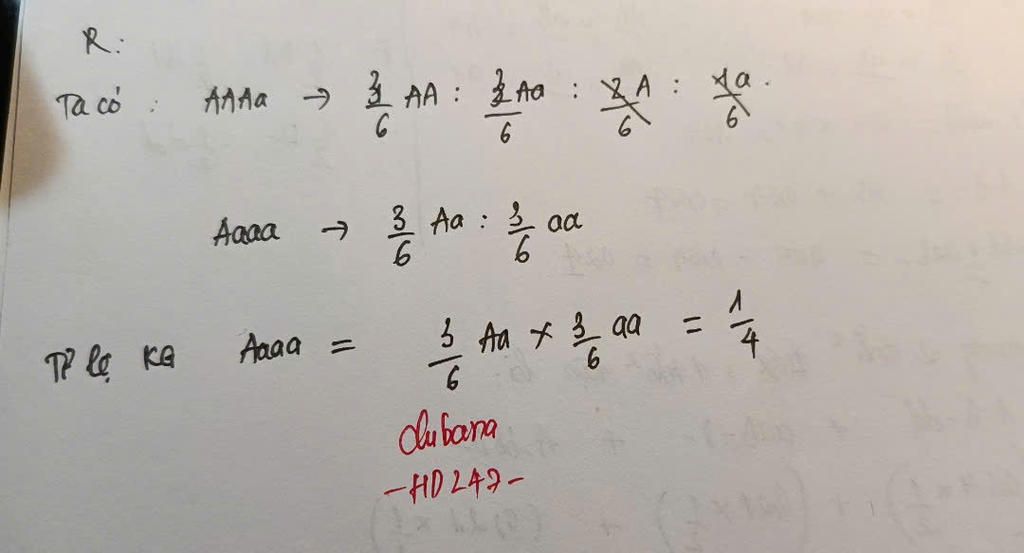 R:
Ta có : AAAa → 3/6 AA : 3/6 Aa : 2/6 A : 1/6 a.
Aaaa → 3/6 Aa : 3/6 aa
Tỉ lệ KG Aaaa = 3/6 Aa × 3/6 aa = 1/4
Clubana
-HD247-